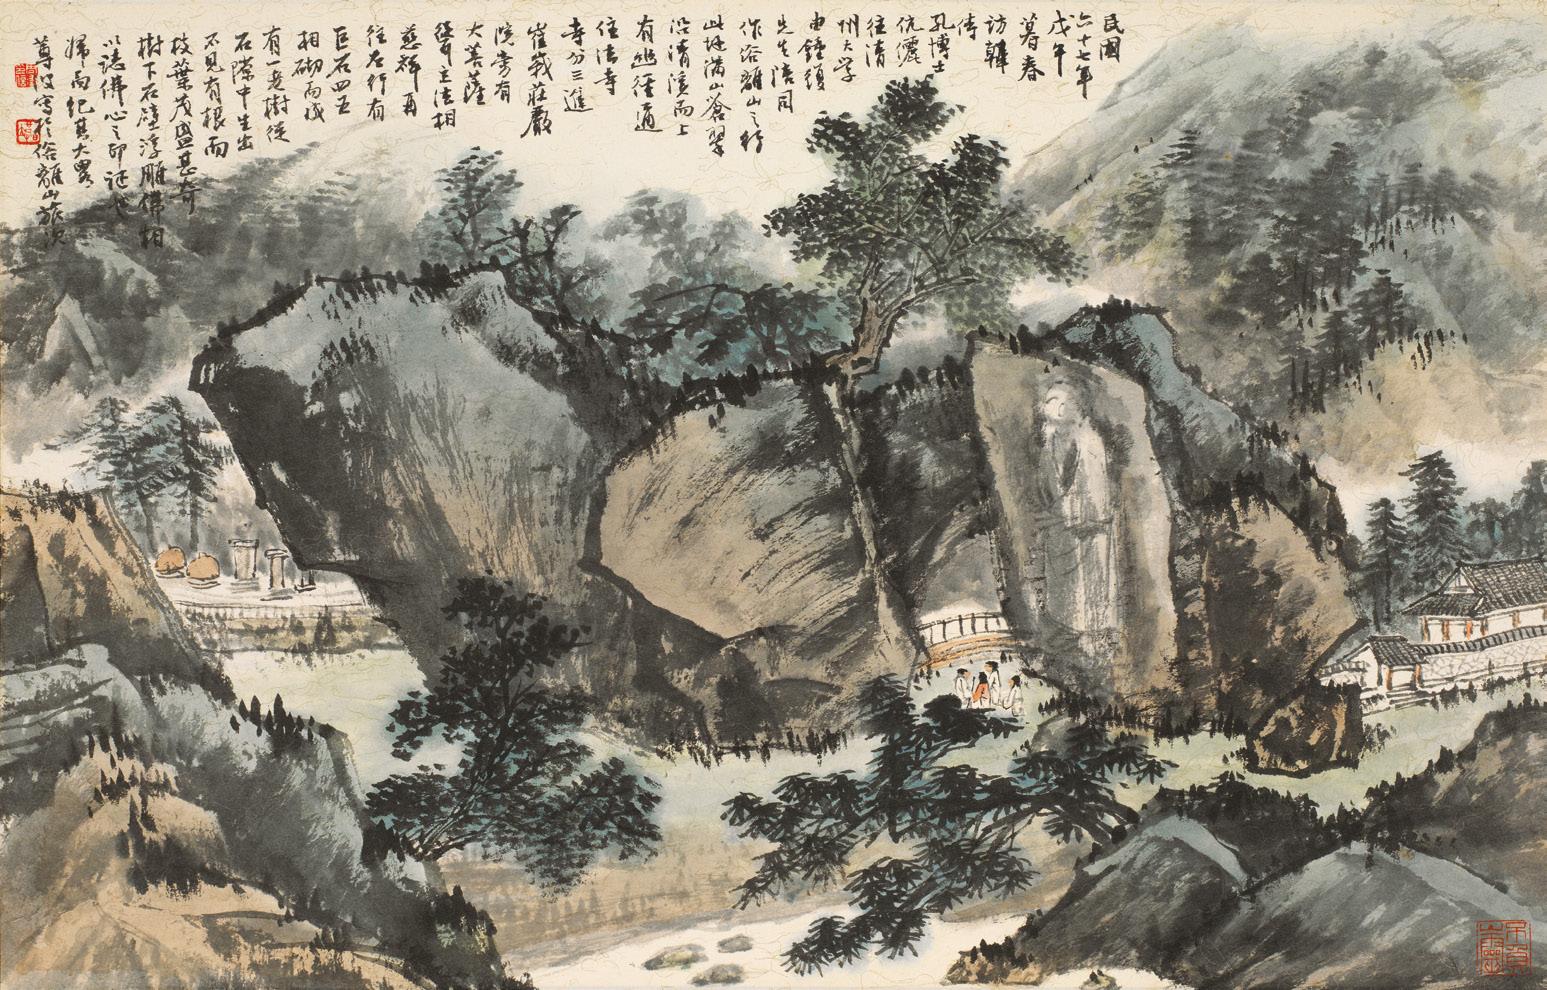 民國
六十七年
戊午
暮春
訪韓
偕
孔博士
伉儷
往清
州大學
由鍾
先生陪同
作俗離山之行
此地滿山蒼翠
沿清溪而上
有幽徑通
住法寺
寺分三進
崔峩莊嚴
院旁有
大菩薩
聳立法相
慈祥再
往左行有
巨石四五
相砌而成
有一老樹從
石隙中生出
不見有根而
枝葉茂盛甚奇
樹下石壁浮雕佛相
以誌佛心之印證也
歸而紀其大畧
寫於俗離山旅次